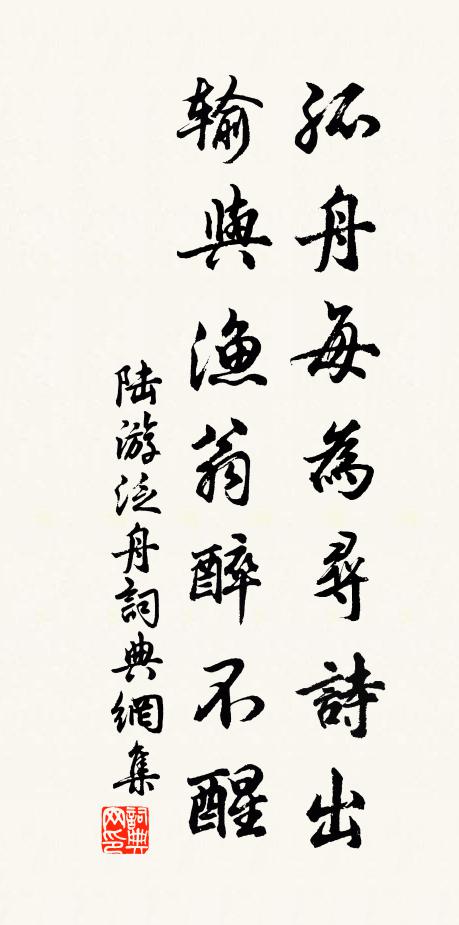 孤舟每為尋詩出
輸與漁翁醉不醒
陸游泛舟詞典網集
詞典网印